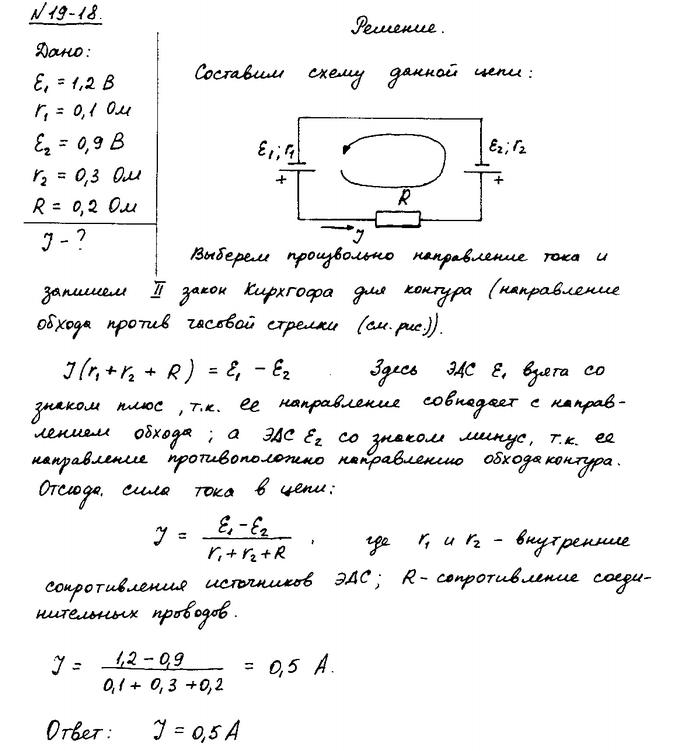 №19-18.
Решение.
Дано:
Ɛ₁ = 1,2 В
r₁ = 0,1 Ом
Ɛ₂ = 0,9 В
r₂ = 0,3 Ом
R = 0,2 Ом
J - ?
Составим схему данной цепи:
Ɛ₁; r₁
Ɛ₂; r₂
+
+
R
J
Выберем произвольно направление тока и
запишем II закон Кирхгофа для контура (направление
обхода против часовой стрелки (см. рис.)).
J(r₁ + r₂ + R) = Ɛ₁ - Ɛ₂ . Здесь ЭДС Ɛ₁ взята со
знаком плюс, т.к. ее направление совпадает с направ-
лением обхода; а ЭДС Ɛ₂ со знаком минус, т.к. ее
направление противоположно направлению обхода контура.
Отсюда, сила тока в цепи:
J = (Ɛ₁ - Ɛ₂) / (r₁ + r₂ + R) , где r₁ и r₂ - внутренние
сопротивления источников ЭДС; R - сопротивление соеди-
нительных проводов.
J = (1,2 - 0,9) / (0,1 + 0,3 + 0,2) = 0,5 А.
Ответ: J = 0,5 А